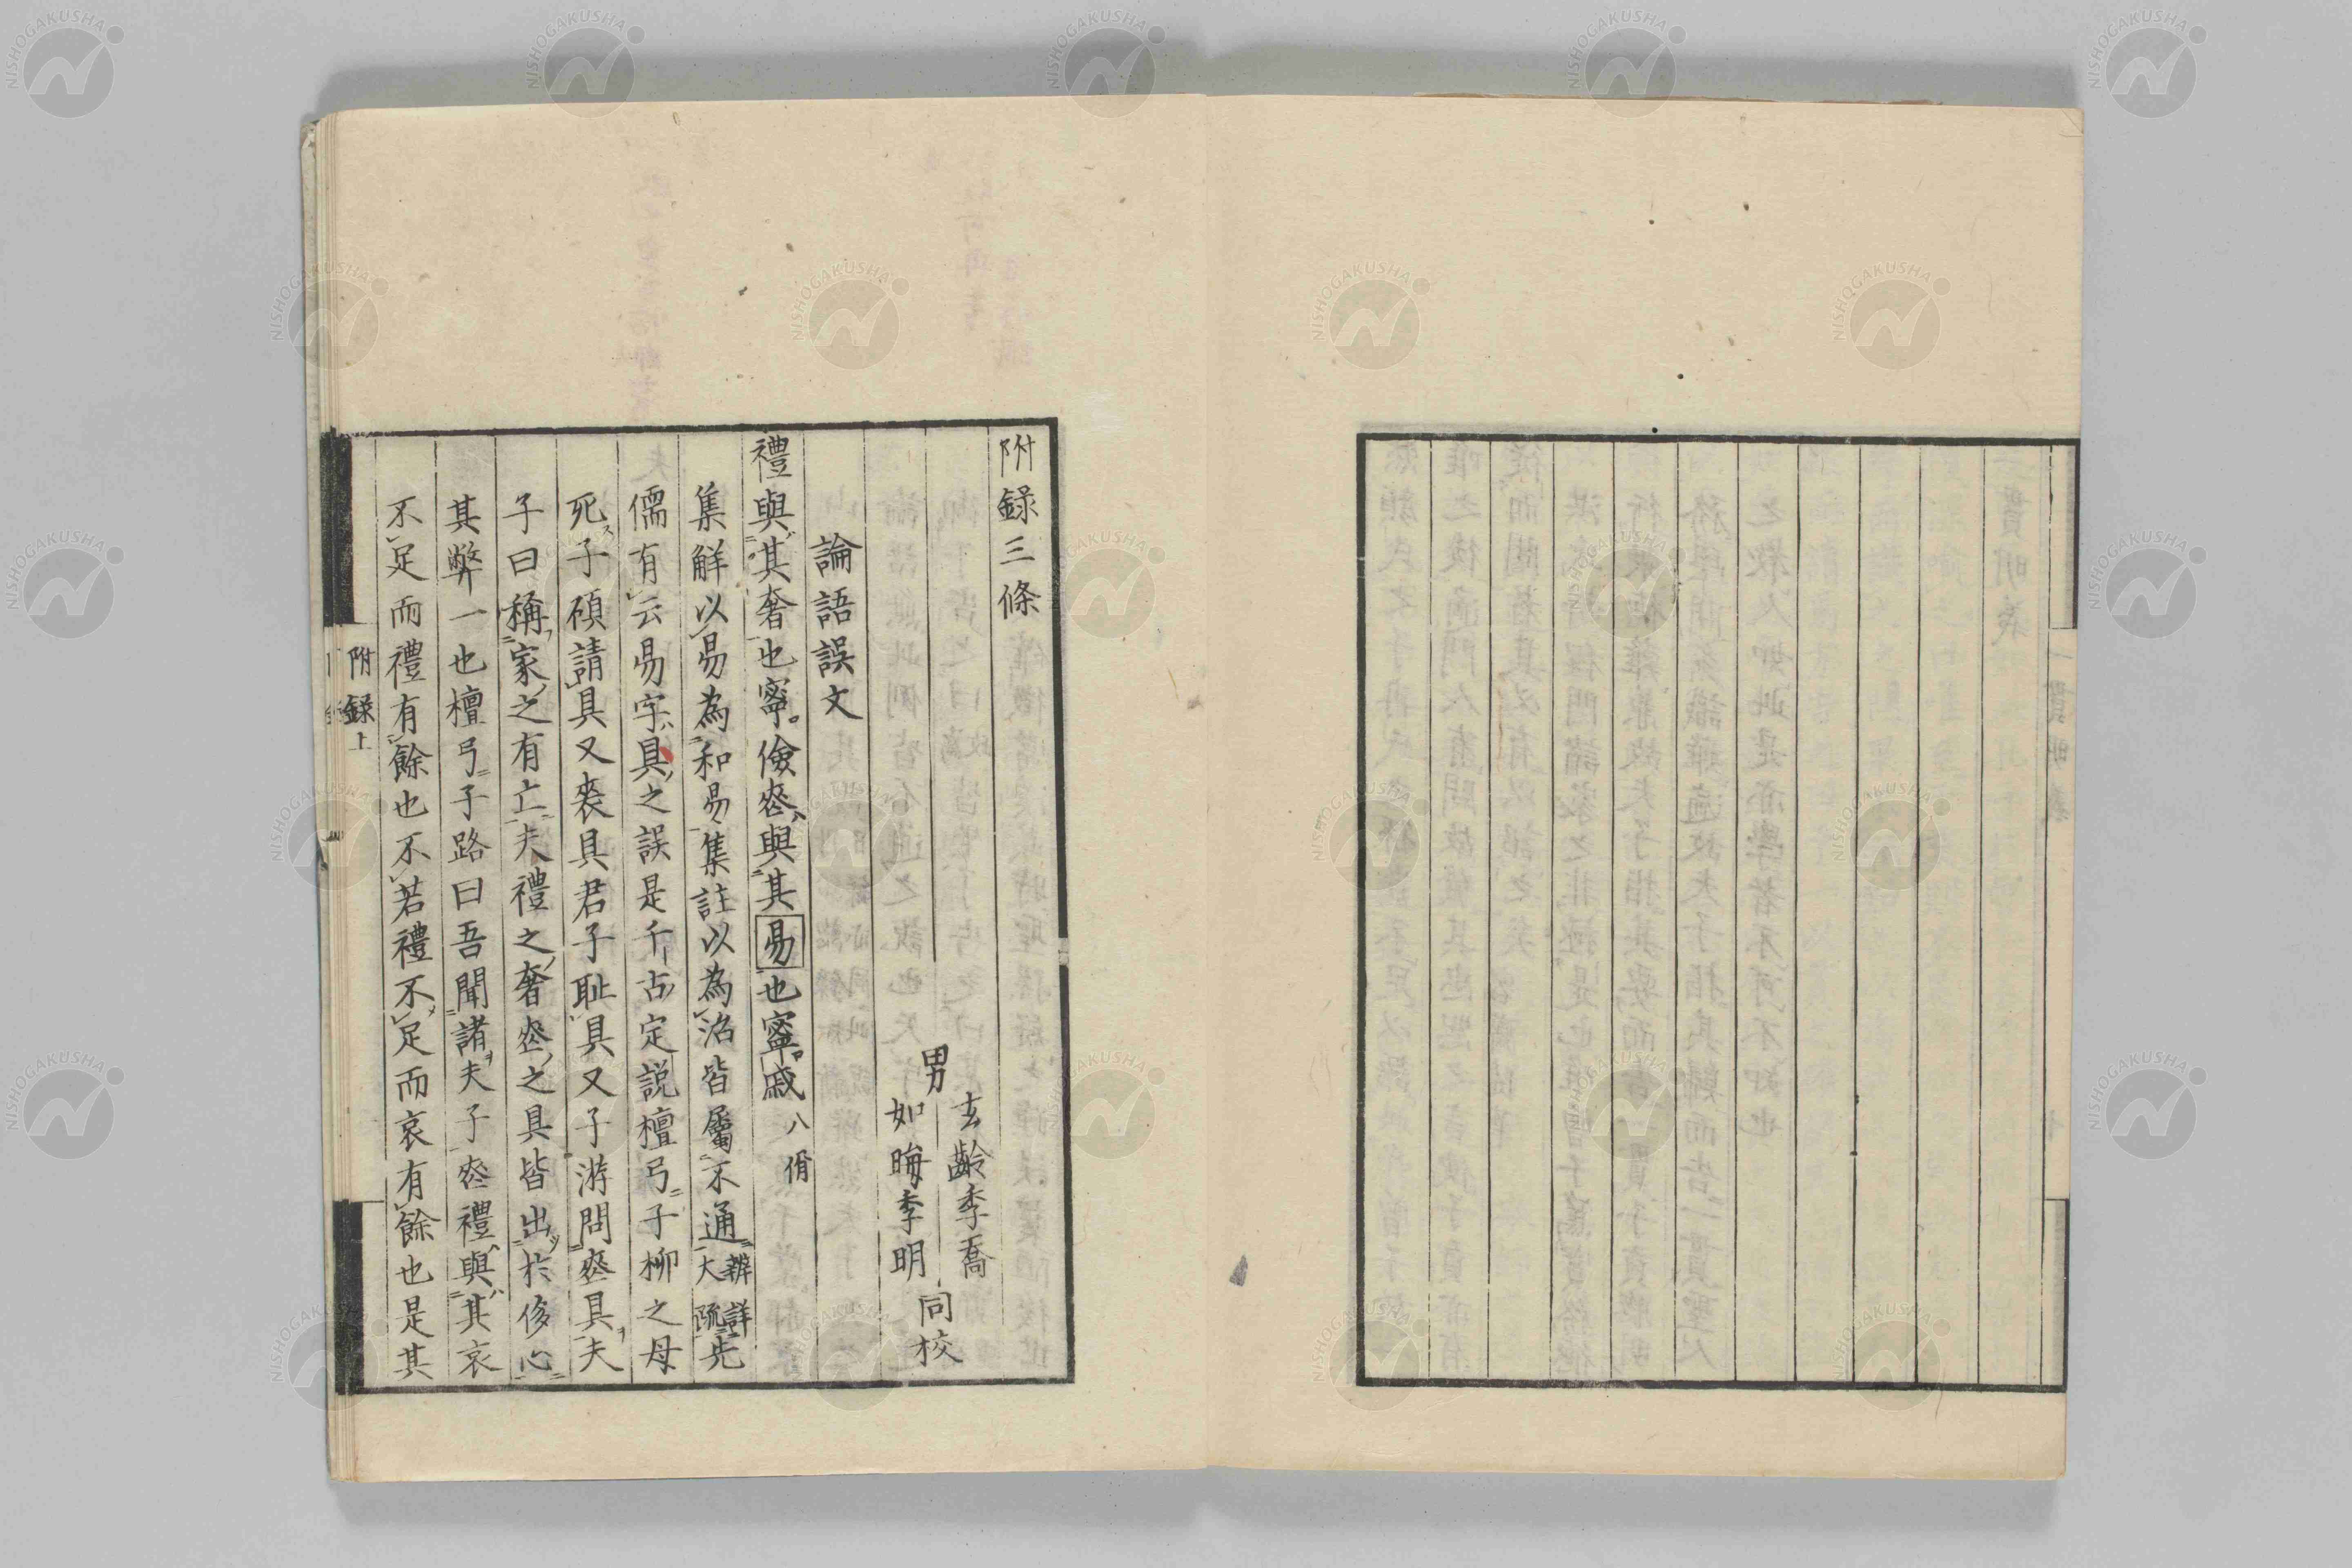 附録三條
男
玄齡季喬
如晦季明
同校
論語誤文
禮與其奢也寧儉喪與其易也寧戚八佾
集解以易為和易集註以為治皆屬不通辨詳大疏先
儒有云易字具之誤是千古定説檀弓子柳之母
死子碩請具又喪具君子恥具又子游問喪具夫
子曰稱家之有亡夫禮之奢喪之具皆出於侈心
其弊一也檀弓子路曰吾聞諸夫子喪禮與其哀
不足而禮有餘也不若禮不足而哀有餘也是其
附録上
NISHOGAKUSHA